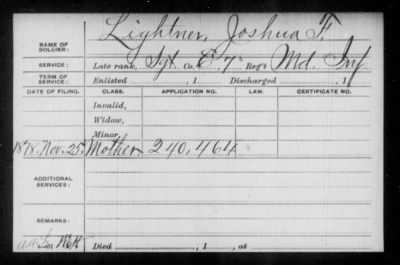 Lightner, Joshua F.
NAME OF SOLDIER:
SERVICE: Late rank, Sgt. Co. E, 7 Reg't Md. Inf
TERM OF SERVICE: Enlisted , 1 Discharged , 1
DATE OF FILING. CLASS. APPLICATION NO. LAW. CERTIFICATE NO.
Invalid,
Widow,
Minor,
1878, Nov. 25. Mother 240,464
ADDITIONAL SERVICES:
REMARKS:
Died , 1 , at